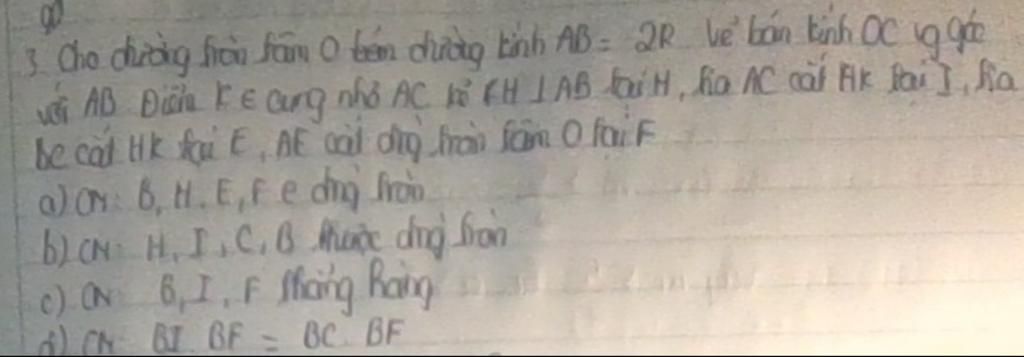 3. Cho đường tròn tâm O đường kính AB = 2R Vẽ bán kính OC vg góc
với AB Điểm K ∈ cung nhỏ AC kẻ KH ⊥ AB tại H, tia AC cắt HK tại I, tia
BC cắt HK tại E, AE cắt đng tròn tâm O tại F
a) CM: B, H, E, F ∈ đng tròn
b) CM: H, I, C, B thuộc đng tròn
c) CM B, I, F thẳng hàng
d) CM BI. BF = BC. BF